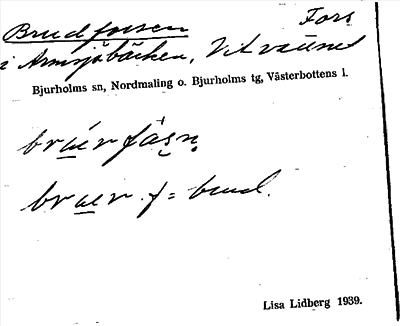 Brudforsen Fors
i Armsjöbäcken, Vitvattnet
Bjurholms sn, Nordmaling o. Bjurholms tg, Västerbottens l.
bruerfásn.
bruer f = brud.
Lisa Lidberg 1939.